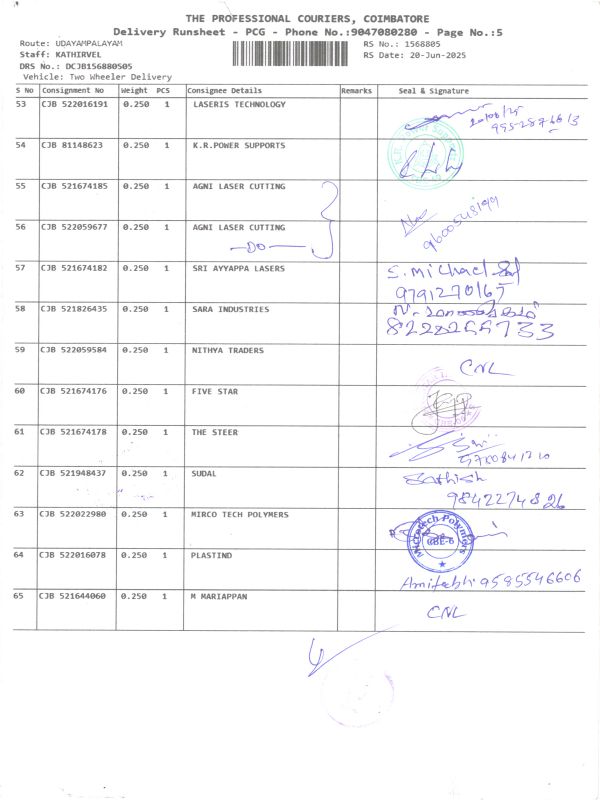 THE PROFESSIONAL COURIERS, COIMBATORE
Delivery Runsheet - PCG - Phone No.:9047080280 - Page No.:5
Route: UDAYAMPALAYAM
Staff: KATHIRVEL
DRS No.: DCJB156880505
Vehicle: Two Wheeler Delivery
RS No.: 1568805
RS Date: 20-Jun-2025
S No Consignment No Weight PCS Consignee Details Remarks Seal & Signature
53 CJB 522016191 0.250 1 LASERIS TECHNOLOGY
20/06/25
54 CJB 81148623 0.250 1 K.R.POWER SUPPORTS
55 CJB 521674185 0.250 1 AGNI LASER CUTTING
56 CJB 522059677 0.250 1 AGNI LASER CUTTING
—DO—
9600548199
57 CJB 521674182 0.250 1 SRI AYYAPPA LASERS S. Michael
9791270165
58 CJB 521826435 0.250 1 SARA INDUSTRIES
8228255733
59 CJB 522059584 0.250 1 NITHYA TRADERS CNL
60 CJB 521674176 0.250 1 FIVE STAR
61 CJB 521674178 0.250 1 THE STEER
62 CJB 521948437 0.250 1 SUDAL Sathish
9842274826
63 CJB 522022980 0.250 1 MIRCO TECH POLYMERS Microtech Polymers CBE-6
64 CJB 522016078 0.250 1 PLASTIND
Amitabh 9595546606
65 CJB 521644060 0.250 1 M MARIAPPAN CNL